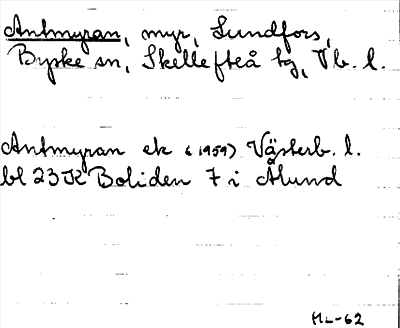 Antmyran, myr, Lundfors,
Byske sn, Skellefteå tg, Vb. l.
Antmyran ek (1959) Västerb. l.
bl 23 K Boliden 7 i Ålund
ML-62